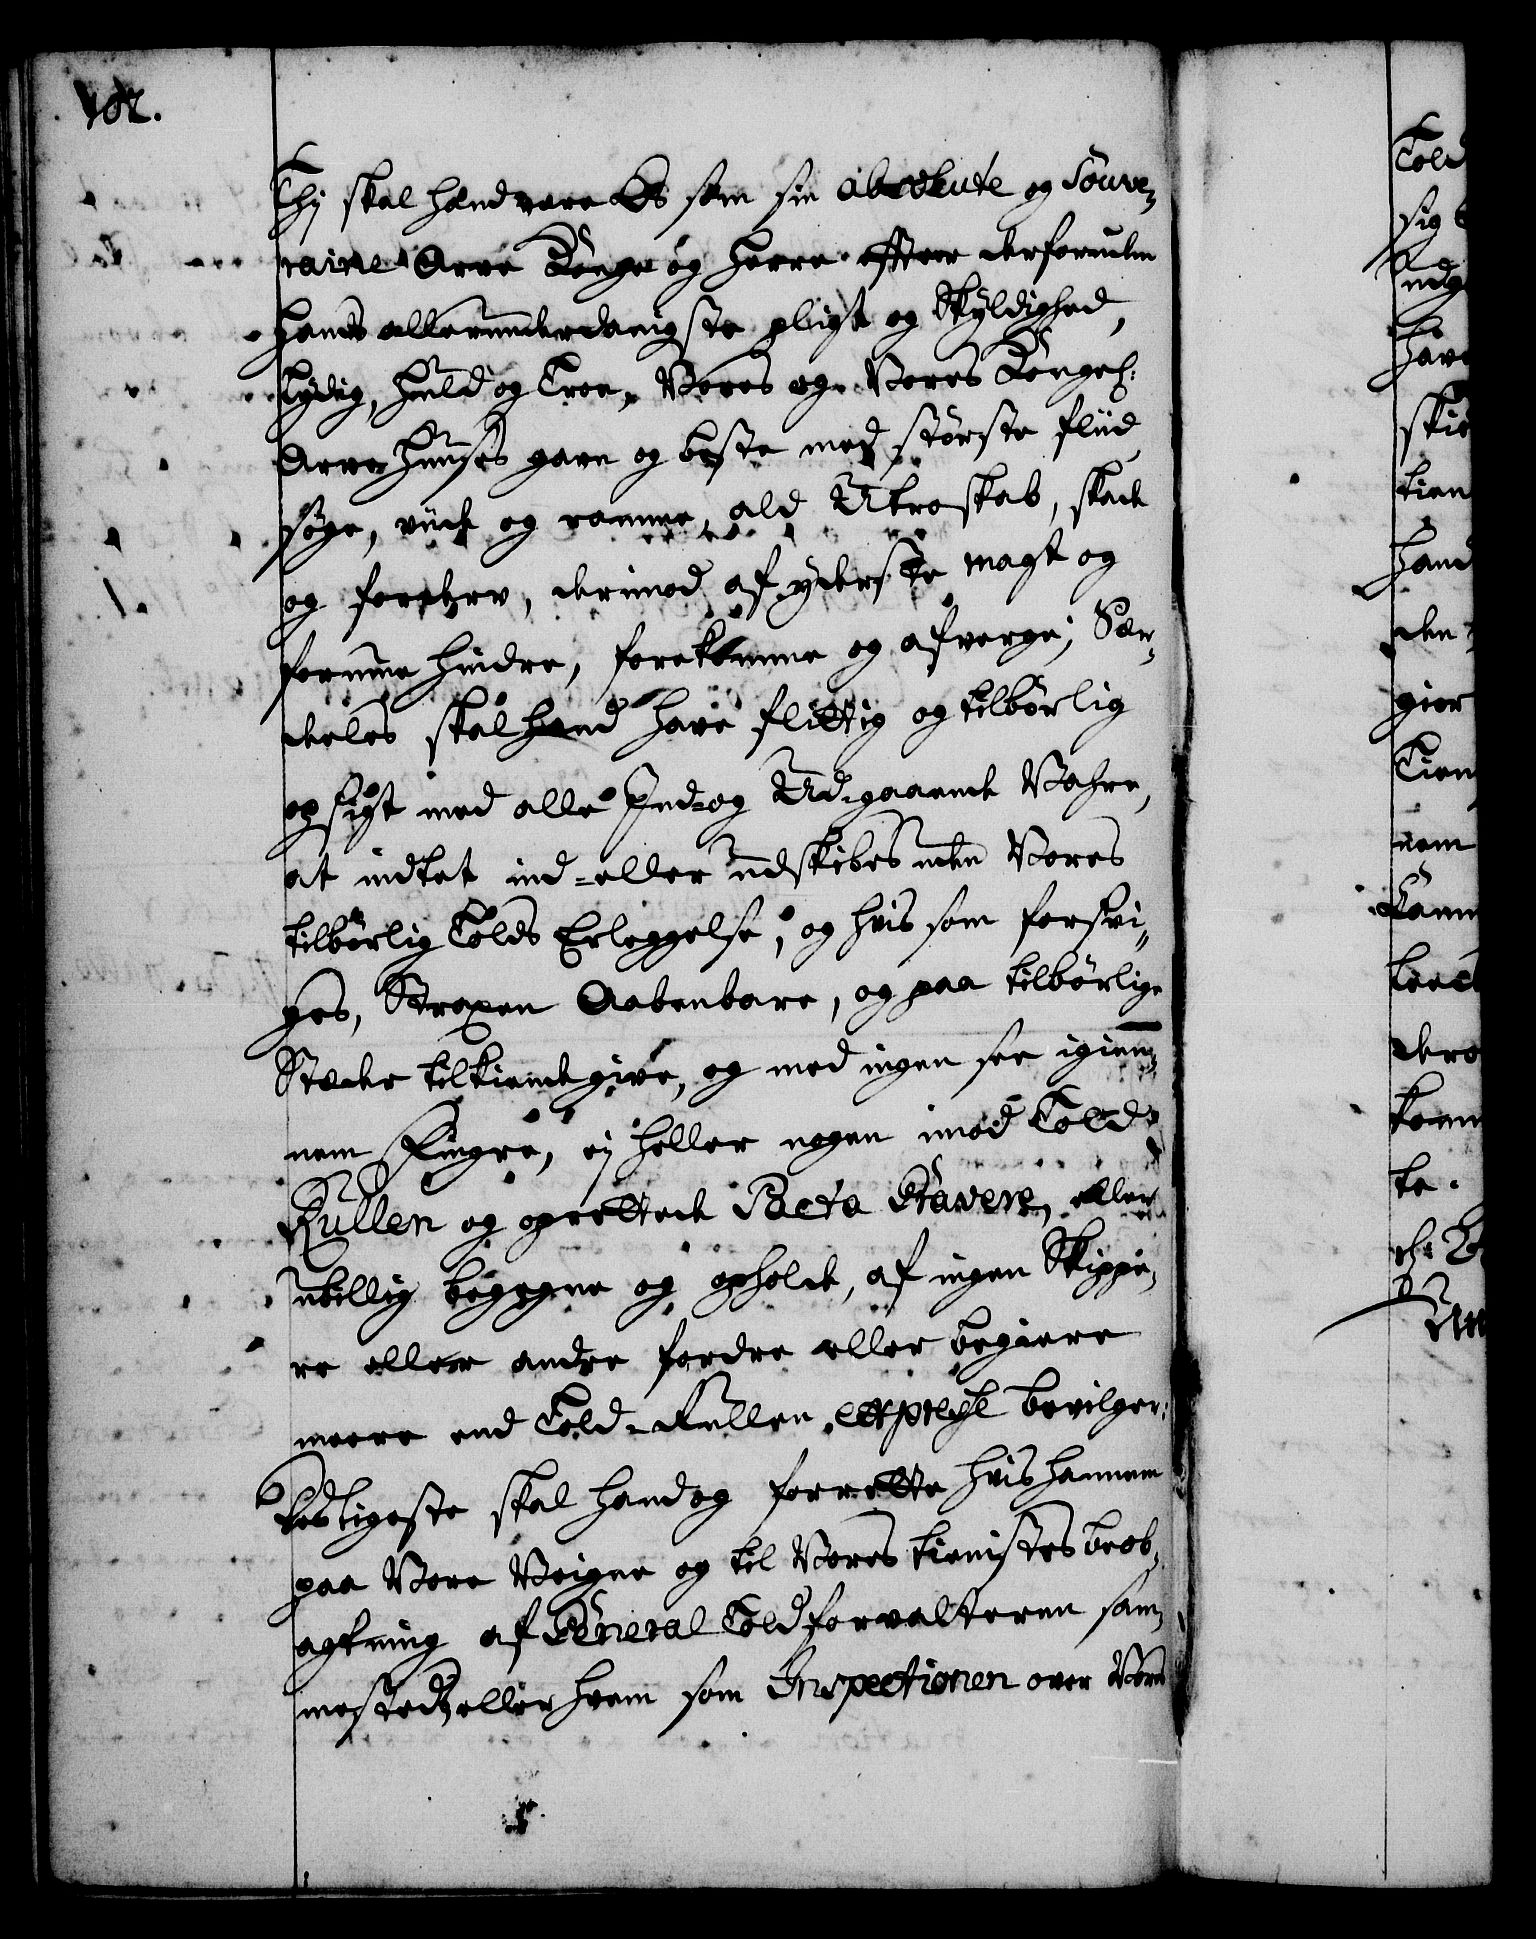 102.
Thj skal hand være Os som sin absolute og Souve¬
raine Arve Konge og Herre efter derforuden
hans allerunderdanigste pligt og Skyldighed,
Lydig, Huld og Troe, Vores og Vores Kongel:
Arve Huuses gavn og beste med største fliid
søge, viide og ramme, ald Utroskab, skade
og forderv, derimod af yderste magt og
formue hindre, forekomme og afverge; Sær¬
deles skal hand have flittig og tilbørlig
opsigt med alle Ind- og Udgaaende Vahre,
at indtet ind- eller udskibes uden Vores
tilbørlig Tolds Erleggelse, og hvis som forsvi¬
ges, Straxen Aabenbare, og paa tilbørlige
Stæder tilkiende give, og med ingen see igien¬
nem Fingre, ej heller nogen imod Told-
Rullen og oprettede Pacta gravere, eller
ubillig begegne og opholde, af ingen Skippe¬
re eller andre fordre eller begiere
meere end Told-Rullen expresse bevilger:
Desligeste skal hand og forrette hvis hannem
paa Vore Veigne og til Vores tienistes beob¬
agtning af General Toldforvalteren sam¬
mesteds eller hvem som Inspectionen over Vores
Told
sig
udg
have
skie
tien
hand
den
gior
Tien
nem
dero
te.